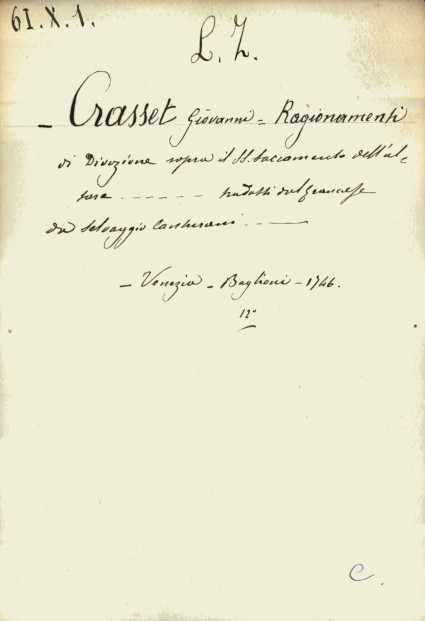 61. X. 1.
L. Z.
- Crasset Giovanni = Ragionamenti
di Divozione sopra il SS. Sacramento dell'al=
tare - - - - - - tradotti dal francese
da Selvaggio Canturani - - -
- Venezia - Baglioni - 1746.
12°
C.